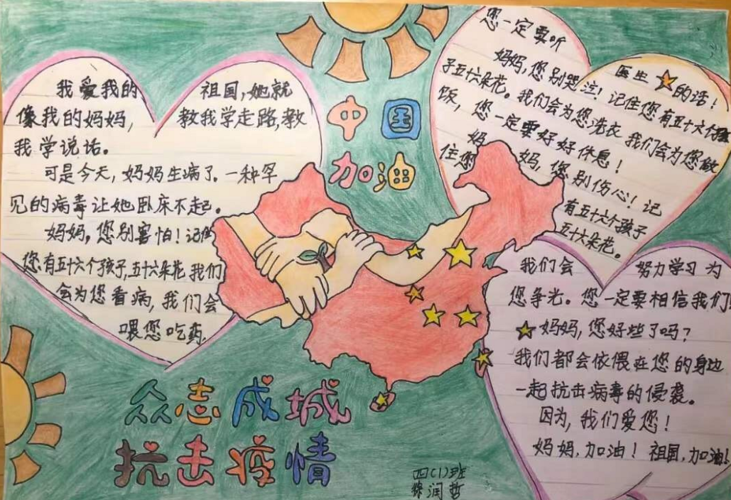 我爱我的祖国，她就
像我的妈妈，教我学走路，教
我学说话。
可是今天，妈妈生病了。一种罕
见的病毒让她卧床不起。
妈妈，您别害怕！记住
您有五十六个孩子，五十六朵花。我们
会为您看病，我们会
喂您吃药
中国
加油
您一定要听医生的话！
妈妈，您别哭泣！记住您有五十六个孩
子五十六朵花。我们会为您洗衣 我们会为您做
饭，您一定要好好休息！
妈妈，您别伤心！记
住您有五十六个孩子
五十六朵花。
我们会努力学习 为
您争光。您一定要相信我们！
妈妈，您好些了吗？
我们都会依偎在您的身边
一起抗击病毒的侵袭。
因为，我们爱您！
妈妈，加油！祖国，加油！
众志成城
抗击疫情
四(1)班
润哲